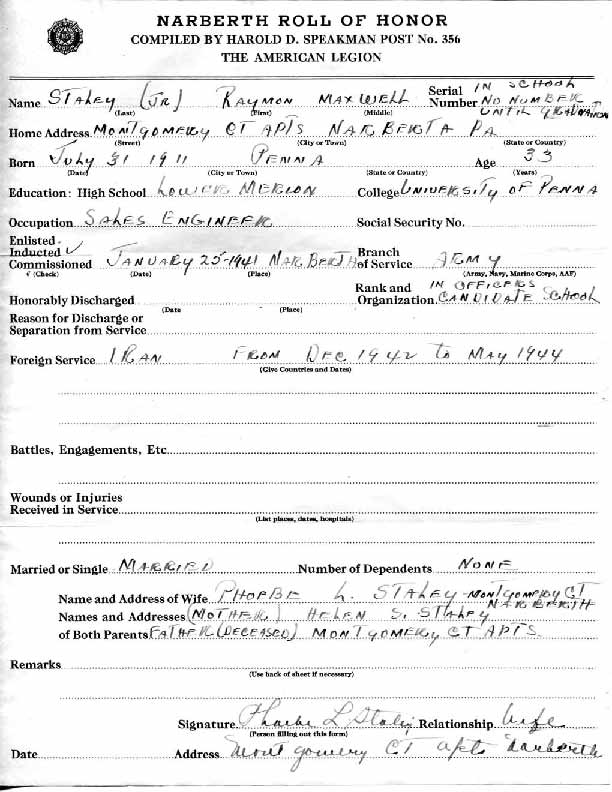 NARBERTH ROLL OF HONOR
COMPILED BY HAROLD D. SPEAKMAN POST No. 356
THE AMERICAN LEGION
IN SCHOOL
Name STALEY (JR) RAYMON MAXWELL Serial Number NO NUMBER
UNTIL GRADUATION
(Last) (First) (Middle)
Home Address MONTGOMERY CT APTS NARBERTH PA
(Street) (City or Town) (State or Country)
Born JULY 31 1911 PENNA Age 33
(Date) (City or Town) (State or Country) (Years)
Education: High School LOWER MERION College UNIVERSITY OF PENNA
Occupation SALES ENGINEER Social Security No.
Enlisted
Inducted ✓
Commissioned JANUARY 25-1941 NARBERTH Branch of Service ARMY
√ (Check) (Date) (Place) (Army, Navy, Marine Corps, AAF)
Honorably Discharged Rank and Organization IN OFFICERS CANDIDATE SCHOOL
(Date (Place)
Reason for Discharge or
Separation from Service
Foreign Service IRAN FROM DEC 1942 to MAY 1944
(Give Countries and Dates)
Battles, Engagements, Etc
Wounds or Injuries
Received in Service
(List places, dates, hospitals)
Married or Single MARRIED Number of Dependents NONE
Name and Address of Wife PHOEBE L. STALEY-MONTGOMERY CT
NARBERTH
Names and Addresses (MOTHER) HELEN S. STALEY
of Both Parents FATHER (DECEASED) MONTGOMERY CT APTS.
Remarks
(Use back of sheet if necessary)
Signature Phoebe L Staley Relationship Wife
(Person filling out this form)
Date Address Montgomery CT Apts Narberth